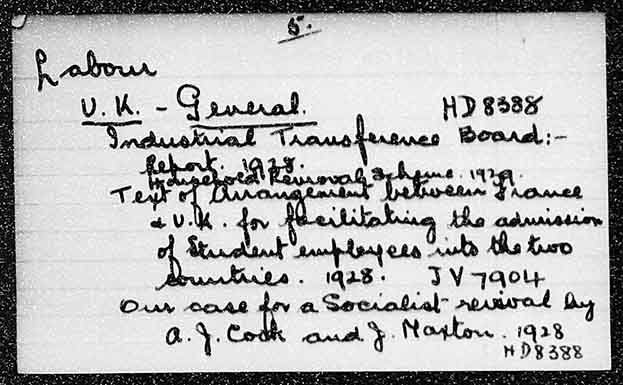 5.
Labour
U.K. - General. HD8388
Industrial Transference Board:-
Report. 1928.
Household Removal Scheme. 1929.
Text of Arrangement between France
& U.K. for facilitating the admission
of Student employees into the two
countries. 1928. JV7904
Our case for a Socialist revival by
A. J. Cook and J. Maxton. 1928
HD8388